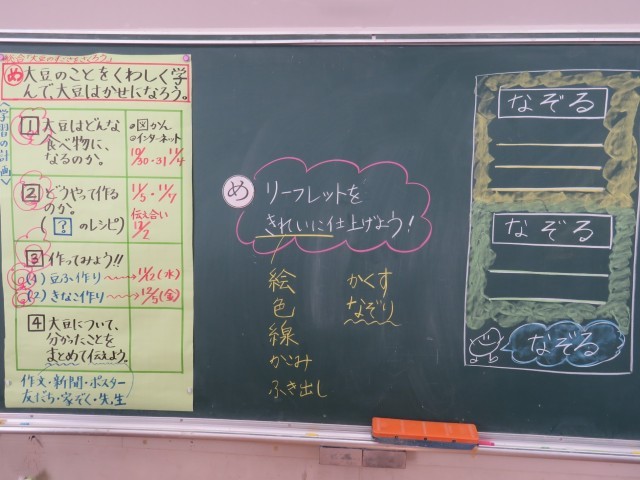 め 大豆のことをくわしく学
んで大豆はかせになろう。
〈学習の計画〉
1 大豆はどんな
食べ物に、
なるのか。
図かん
インターネット
10/30・31 11/4
2 どうやって作る
のか。
? のレシピ)
11/5・11/7
伝え合い
12/2
3 作ってみよう!!
(1) 豆ふ作り
(2) きなこ作り
(水)
12/5(金)
4 大豆について、
分かったことを
まとめて伝えよう。
作文・新聞・ポスター
友だち・家ぞく・先生
め リーフレットを
きれいに仕上げよう!
絵
色
線
かこみ
ふき出し
かくす
なぞり
なぞる
なぞる
なぞる